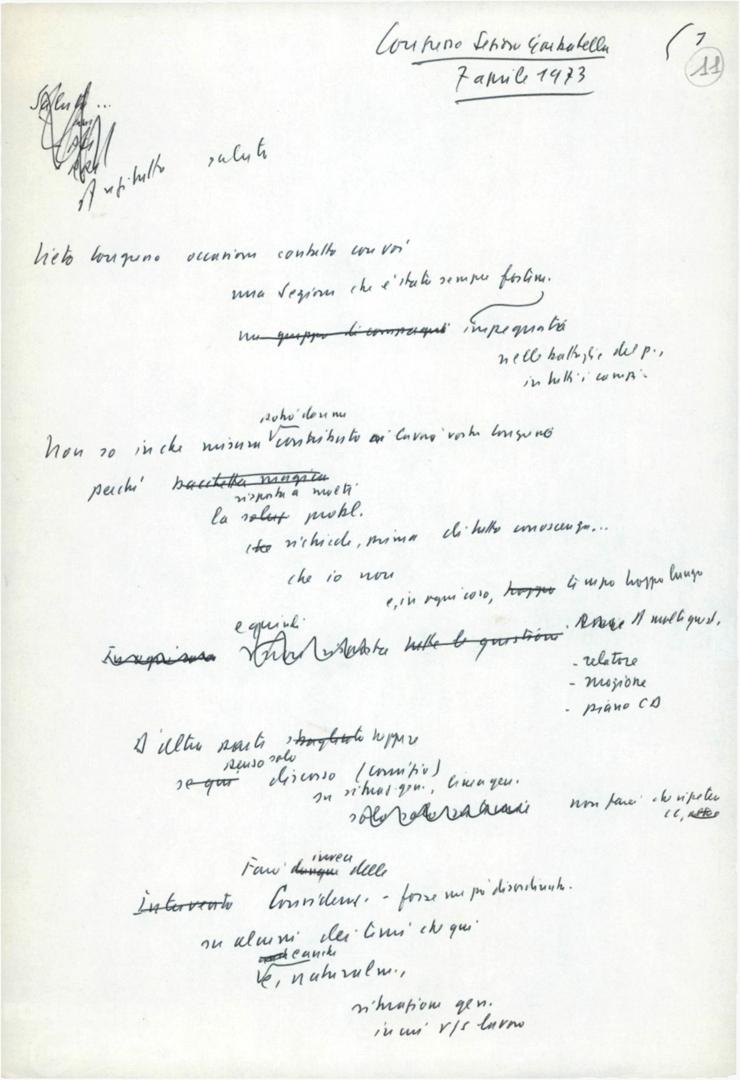 Congresso Sezione Garbatella
7 aprile 1973
11
saluti
Lieto Congresso occasione contatto con voi
una Sezione che è stata sempre fortem.
un gruppo di compagni impegnata
nelle battaglie del p.,
in tutti i campi.
potrò darne
Non so in che misura contributo ai lavori vostro Congresso
perché bacchetta magica
risposta a molti
la probl.
che richiede, prima di tutto conoscenza...
che io non
e, in ogni caso, troppo tempo troppo lungo
e quindi
In ogni caso tutte le questioni. A molte quest.
- relatore
- mozione
- piano CD
D'altra parte sbagliato
senso solo
se qui discorso (comizio)
su situaz. gen., linea gen.
non farei che ripetere
CC,
invece
Farò dunque delle
Intervento Consideraz. - forse un po' disordinate.
su alcuni dei temi che qui
e anche
è, naturalm.,
situazione gen.
in cui v/s lavoro